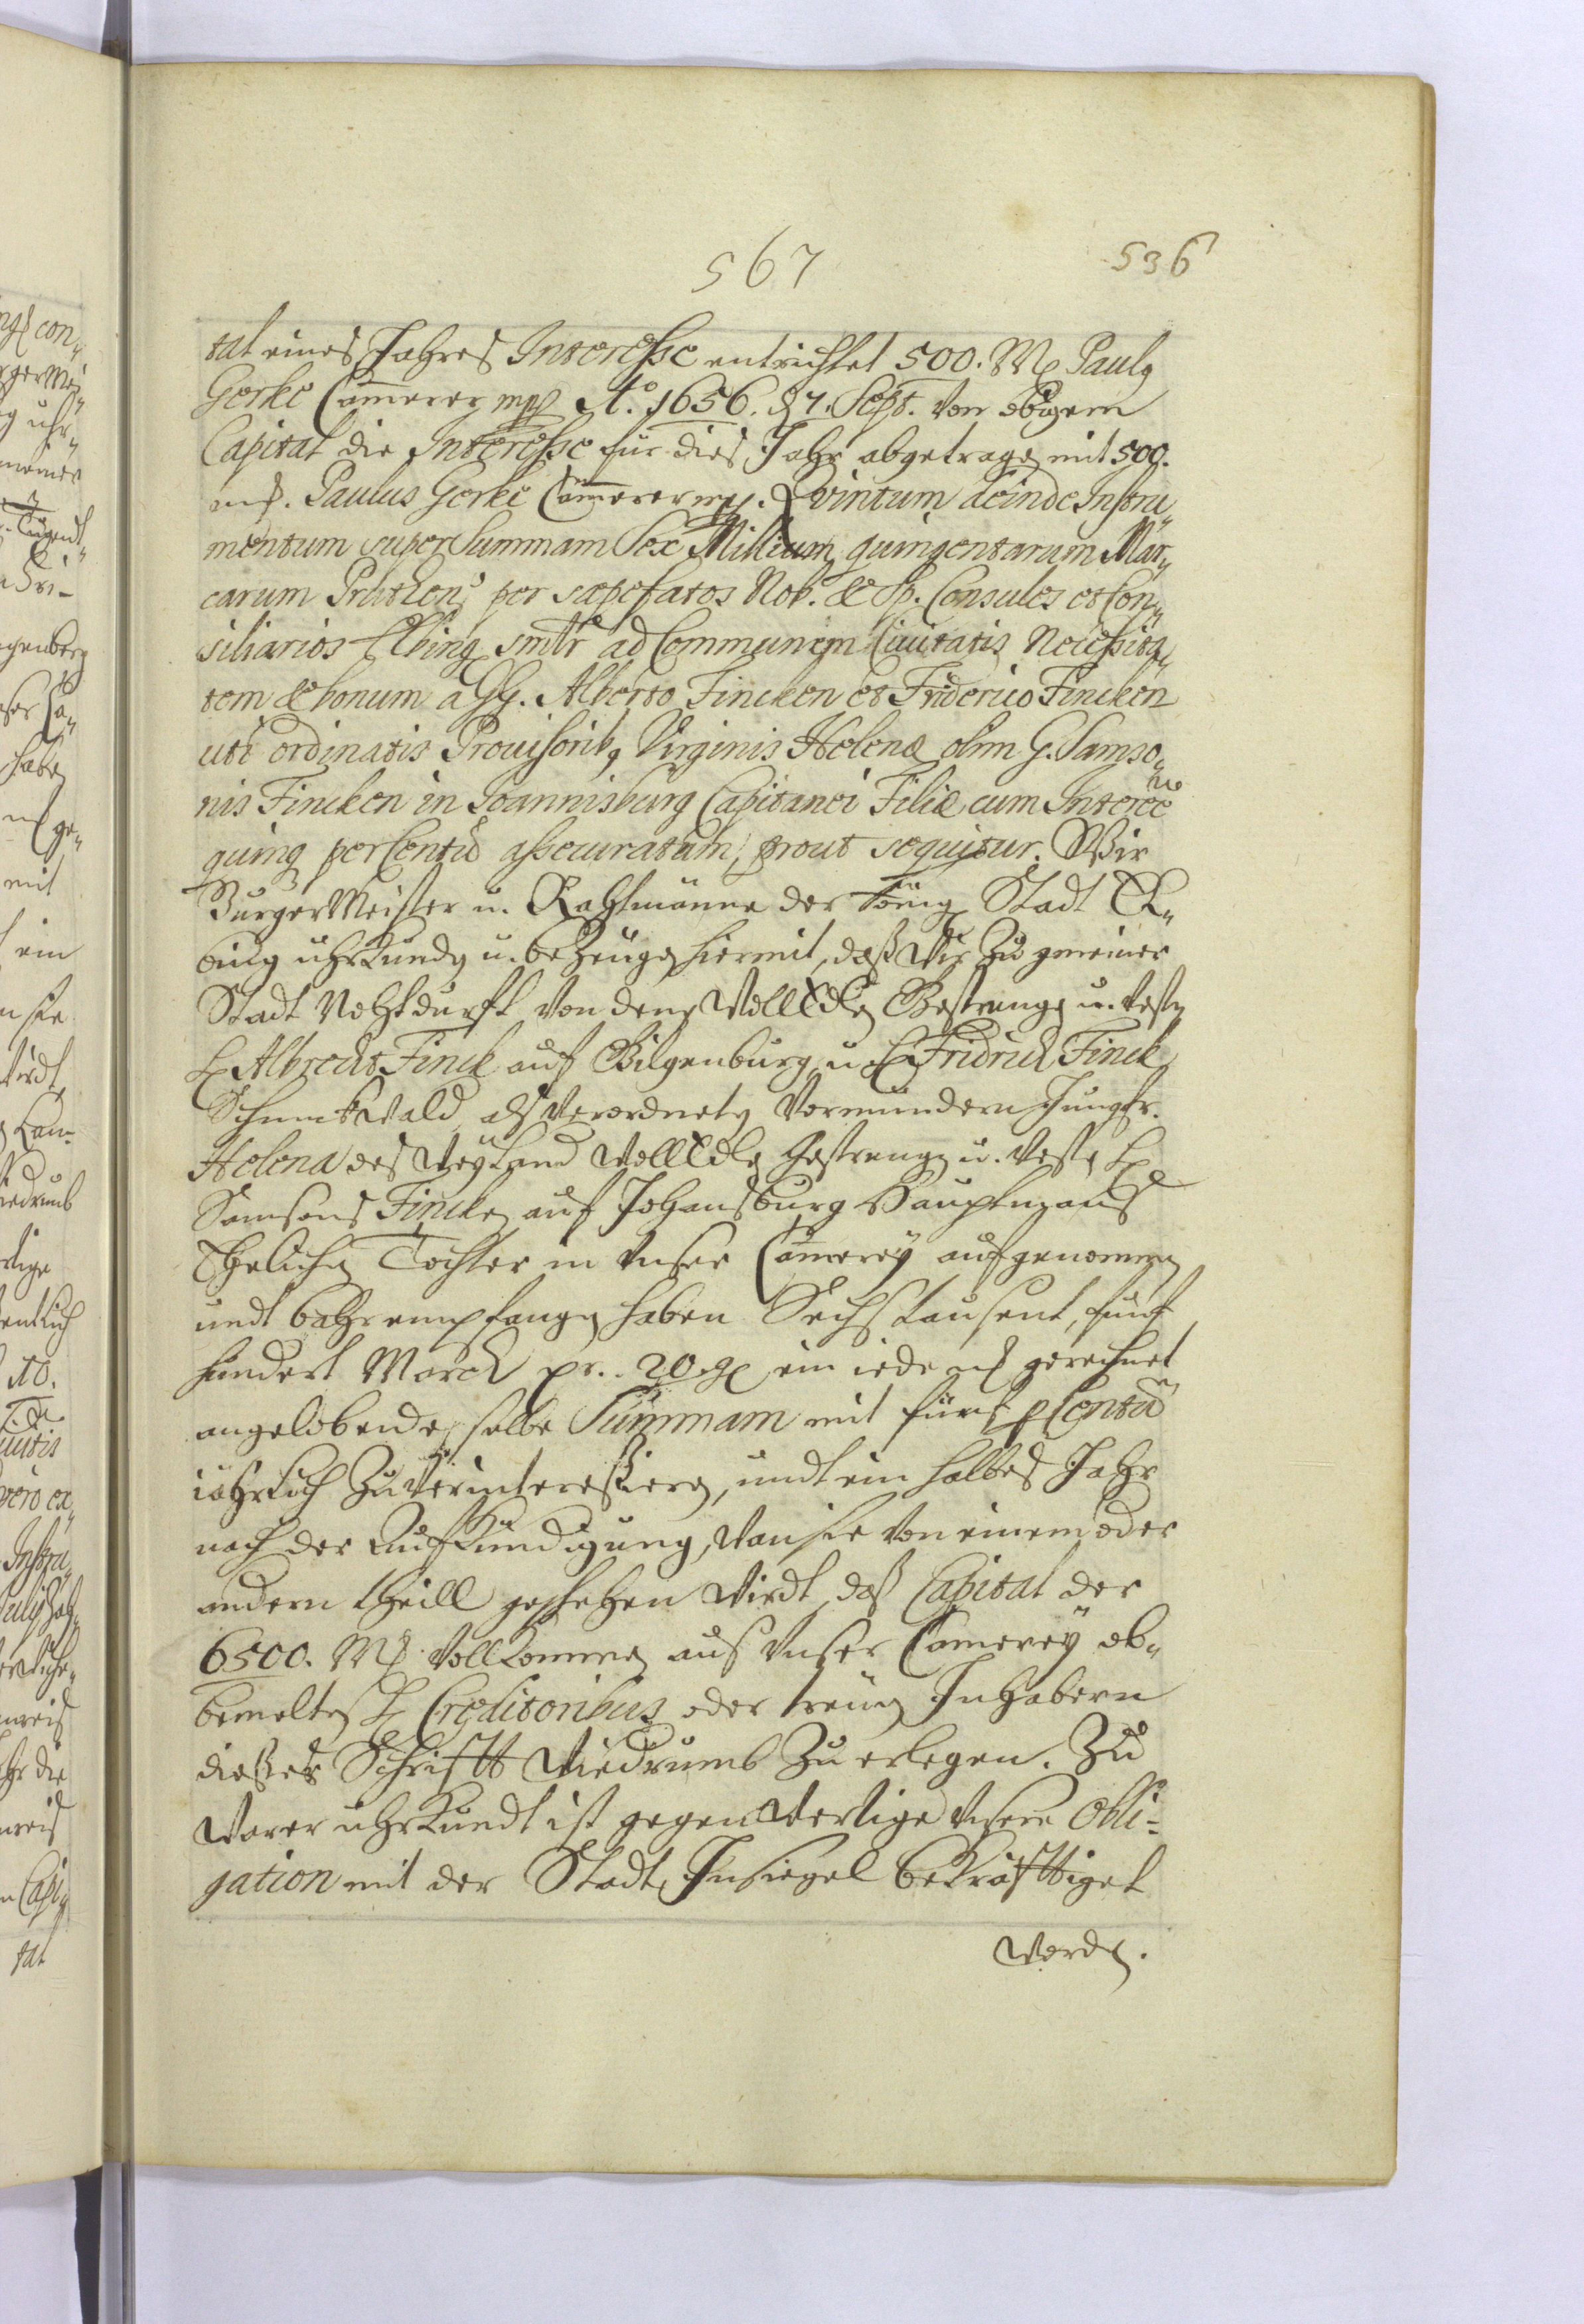 567
536
tat eines Jahres Interesse entrichtet 500. M Paulg
Gerke Cammerer mp Ao. 1656. d 7. Sept. von obigem
Capital die Interesse für dies Jahr abgetragen mit 500.
M. Paulus Gerke Cammerer mp. Qvintum deinde Instru„
mentum super Summam Sex Millium quingentarum Mar„
carum Pruten: per saepefatos Nob. & Sp. Consules et Con„
siliarios Elbing smlr ad Communem Civitatis Necessita„
tem & bonum a GG. Alberto Fincken et Friderico Fincken
uti ordinatis Provisorib, Virginis Helenæ olim G. Samso„
nis Fincken in Joannisburg Capitanei Filiæ cum Interee
quinq per Centũ assecuratam, prout sequitur. Wir
Burger Meister u. Rahtmänne der König Stadt El„
bing uhrkunden u. beZeugen hiermit, daß Wir Zu gemeiner
Stadt Nohtdurfft von denen WollEdlen Gestrengen u. Vesten
H Albrecht Finck auf Gilgenburg, u H Fridrich Finck
Schmickwald, als verordneten Vormündern Jungfr.
Helena des Weyland WollEdlen Gestrengen u. Vesten H
Samsons Fincken auf Johansburg Hauptmans
Ehelichen Tochter in Unser Cammerey aufgenommen
undt bahr empfangen haben Sechstausent, fünf
hundert Marck pr. 20 gl ein iede M gerechnet
angelobende, selbe Summam mit fünf p Centũ
iährlich Zu verinteressieren, undt ein halbes Jahr
nach der Aufkündigung, Wan sie von einem oder
andern theill geschehen Wirdt, daß Capital der
6500. M. Vollkommen aus Unser Camerey ob„
bemelten H Creditoribus oder treuen Inhabern
dießer Schrifft Wiedrumb Zu erlegen. Zu
Warer uhrkundt ist gegenwertige Unsere Obli=
gation mit der Stadt Insiegel bekräfftiget
Worden.